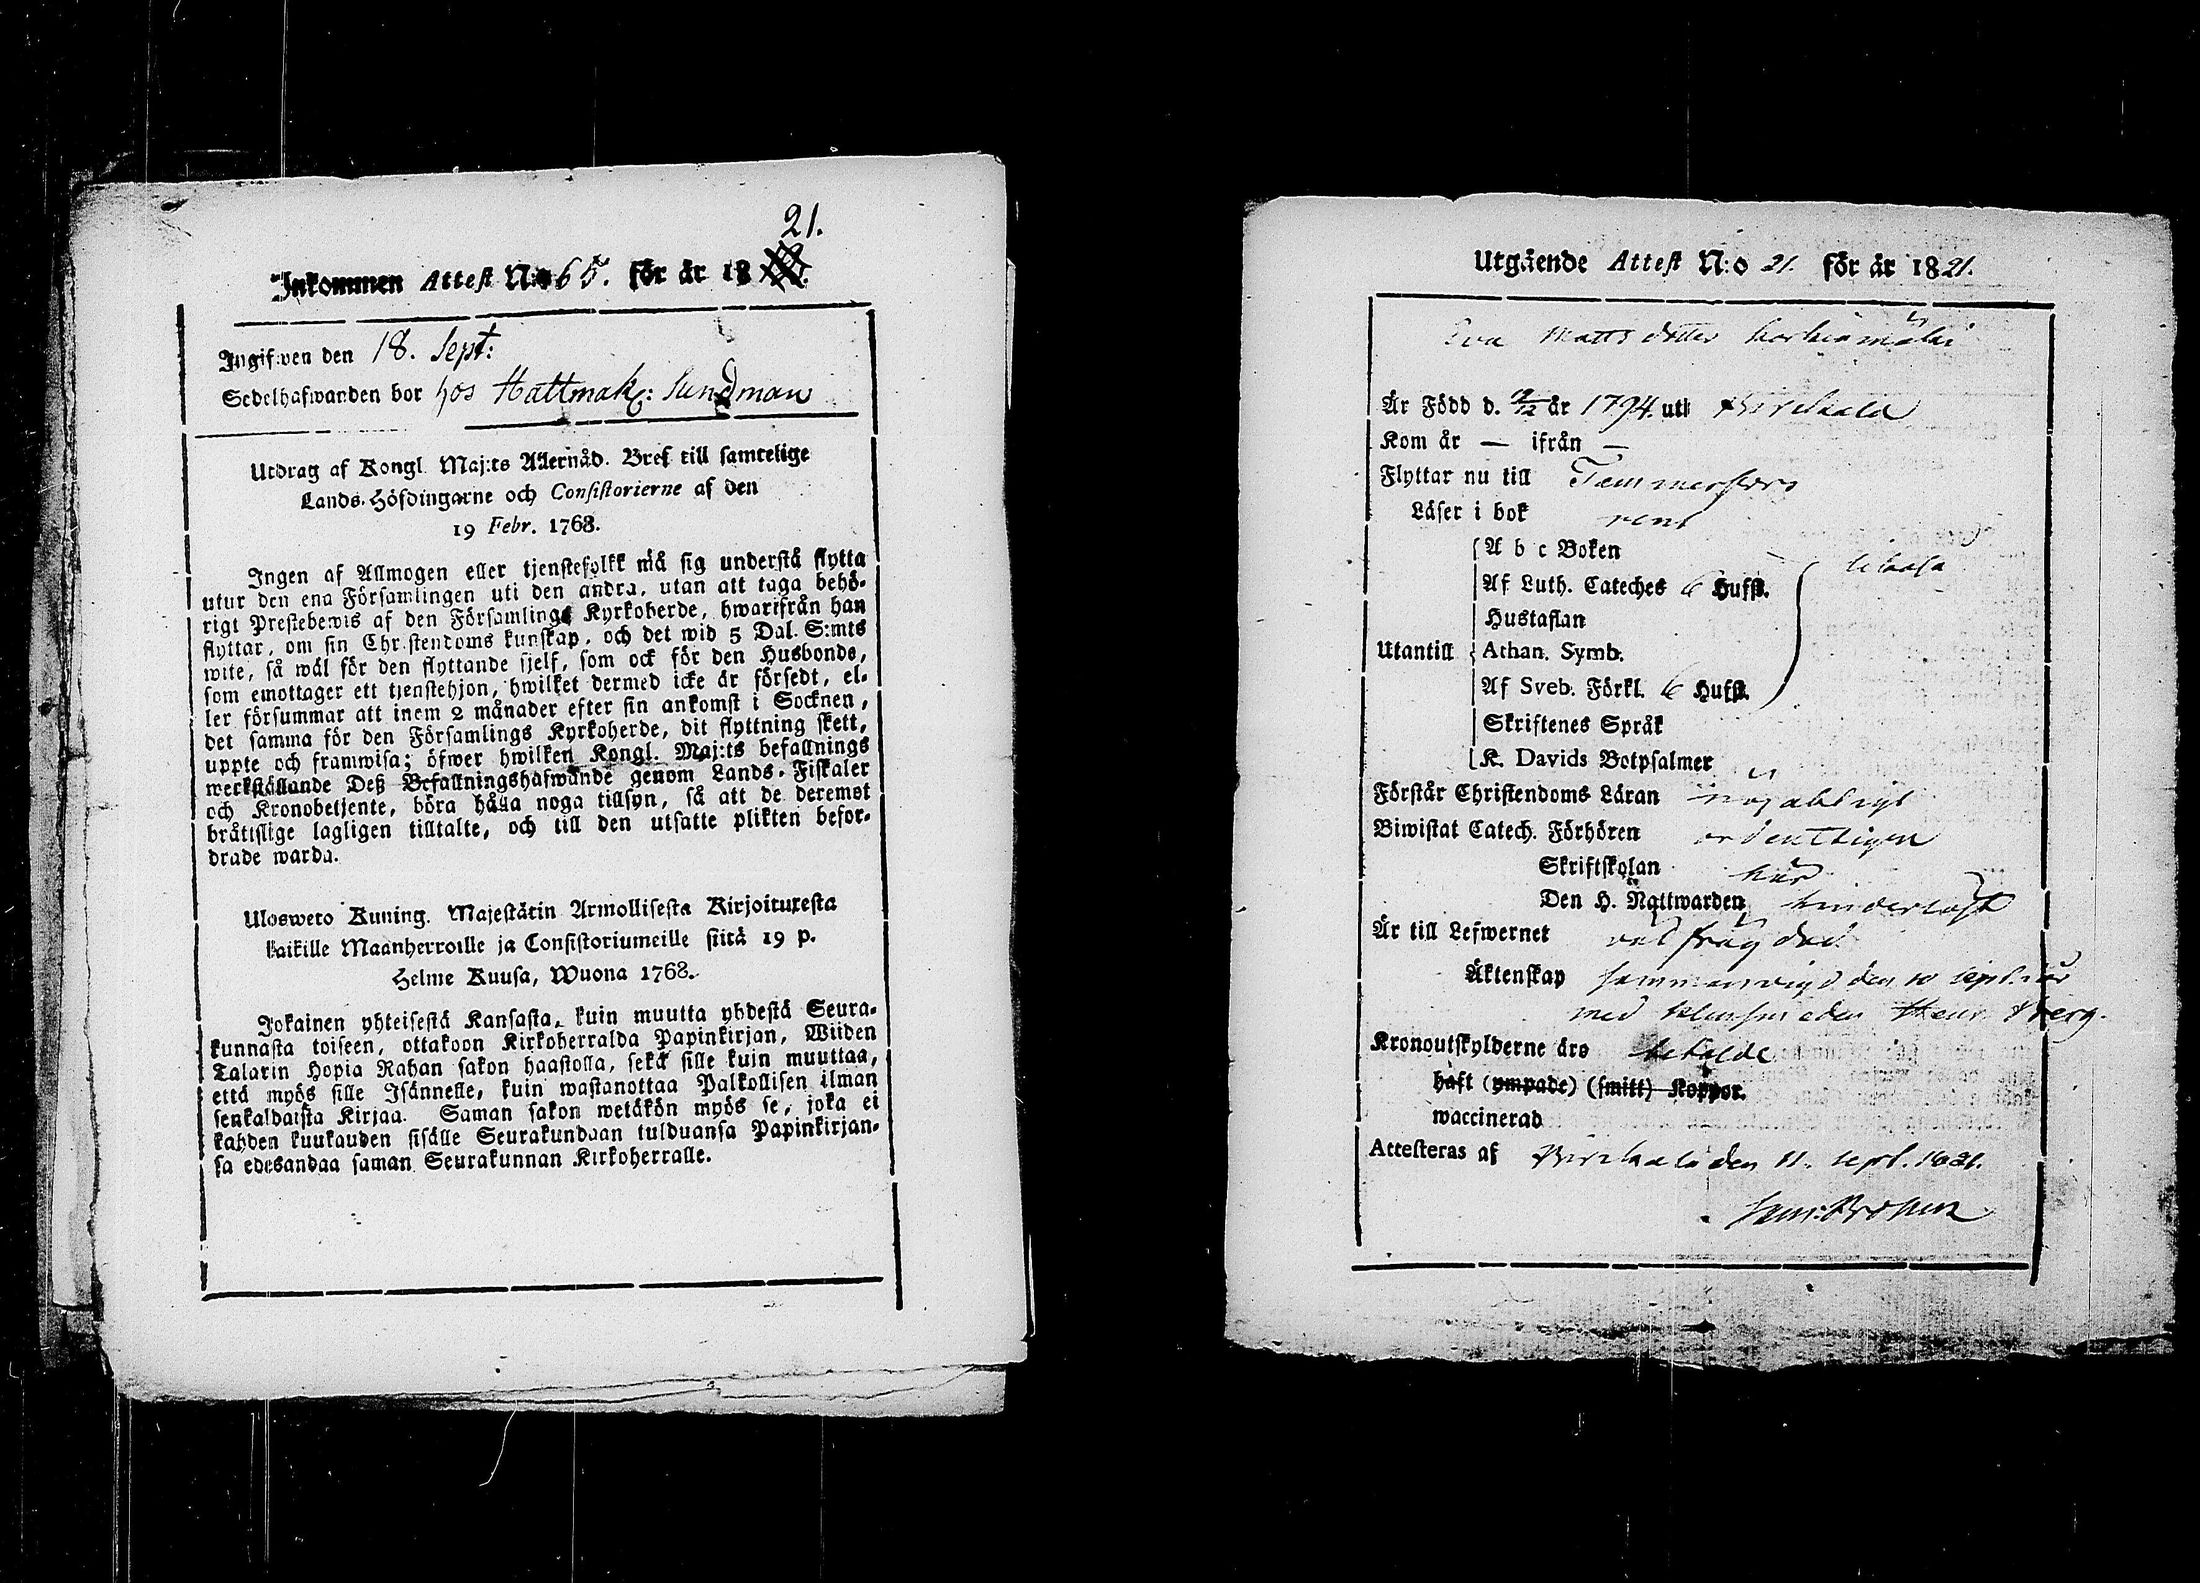 21.
Inkommen Attest N:o 65. för år 18
Ingifwen den 18. Sept:
Sedelhafwanden bor hos Hattmak: Sundman
Utdrag af Kongl. Maj:ts Allernåd. Bref till samtelige
Lands-Höfdingarne och Consistorierne af den
19 Febr. 1768.
Ingen af Allmogen eller tjenstefolkk må sig understå flytta
utur den ena Församlingen uti den andra, utan att taga behö-
rigt Prestebewis af den Församlings Kyrkoherde, hwarifrån han
flyttar, om sin Christendoms kunskap, och det wid 5 Dal. S:mts
wite, så wäl för den flyttande sjelf, som ock för den Husbonde,
som emottager ett tjenstehjon, hwilket dermed icke är försedt, el-
ler försummar att inem 2 månader efter sin ankomst i Socknen,
det samma för den Församlings Kyrkoherde, dit flyttning skett,
uppte och framwisa; öfwer hwilken Kongl. Maj:ts befallnings
werkställande Deß Befallningshafwande genom Lands-Fiskaler
och Kronobetjente, böra hålla noga tillsyn, så att de deremot
bråttslige lagligen tilltalte, och till den utsatte plikten befor-
drade warda.
Ulosweto Kuning. Majestätin Armollisesta Kirjoituresta
kaikille Maanherroille ja Consistoriumeille siitä 19 p.
Helme Kuusa, Wuona 1768.
Jokainen yhteisestä Kansasta, kuin muutta yhdestä Seura-
kunnasta toiseen, ottakoon Kirkoherralda Papinkirjan, Wiiden
Talarin Hopia Rahan sakon haastolla, sekä sille kuin muuttaa,
että myös sille Isännelle, kuin wastanottaa Palkollisen ilman
senkaldaista Kirjaa. Saman sakon wetäkön myös se, joka ei
kahden kuukauden sisälle Seurakundaan tulduansa Papinkirjan-
sa edesandaa saman Seurakunnan Kirkoherralle.
Utgående Attest N:o 21. för år 1821.
Eva Mattsdotter
Är Född d. 9/12 år 1794. uti Birckala
Kom år — ifrån —
Flyttar nu till Tammerfors
Läser i bok rent
A b c Boken
Af Luth. Cateches 6 Hufst.
Hustaflan
Utantill Athan. Symb.
Af Sveb. Förkl. 6 Hufst.
Skriftenes Språk
K. Davids Botpsalmer
Förstår Christendoms Läran nöjaktligt
Biwistat Catech. Förhören ordentligen
Skriftskolan här
Den H. Nattwarden hinderlöst
Är till Lefwernet väl frägdad
Äktenskap sammanvigd den 10 sept. här
med Klensmeden Henr. Berg.
Kronoutskylderne äro betalde
haft (ympade) (smitt) Koppor.
waccinerad
Attesteras af Birckala den 11. sept. 1821.